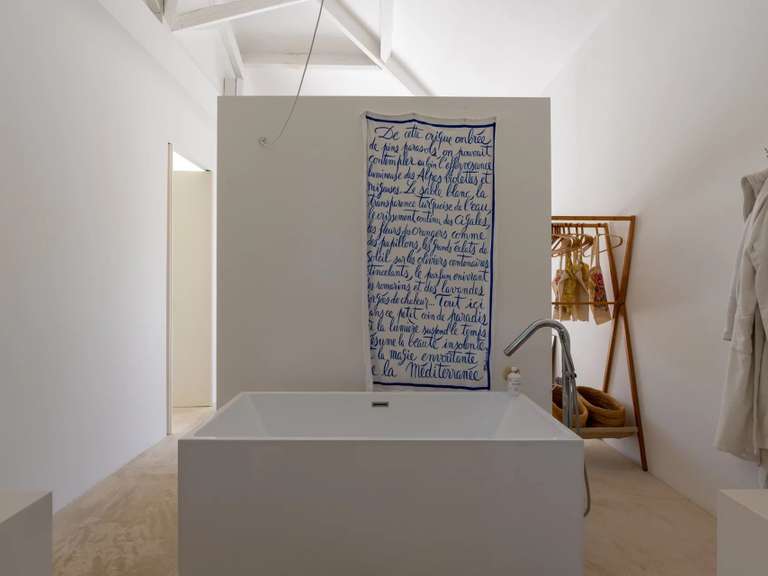 De cette crique ombrée
de pins parasols on pouvait
contempler enfin l'effervescence
lumineuse des Alpes violettes et
neigeuses. Le sable blanc, la
transparence turquoise de l'eau,
le crissement continu des cigales,
les fleurs des orangers comme
des papillons, les grands éclats de
soleil sur les oliviers centenaires
étincelants, le parfum enivrant
des romarins et des lavandes
de chaleur... Tout ici
dans ce petit coin de paradis
la lumière suspend le temps
résume la beauté insolente
la magie envoûtante
de la Méditerranée